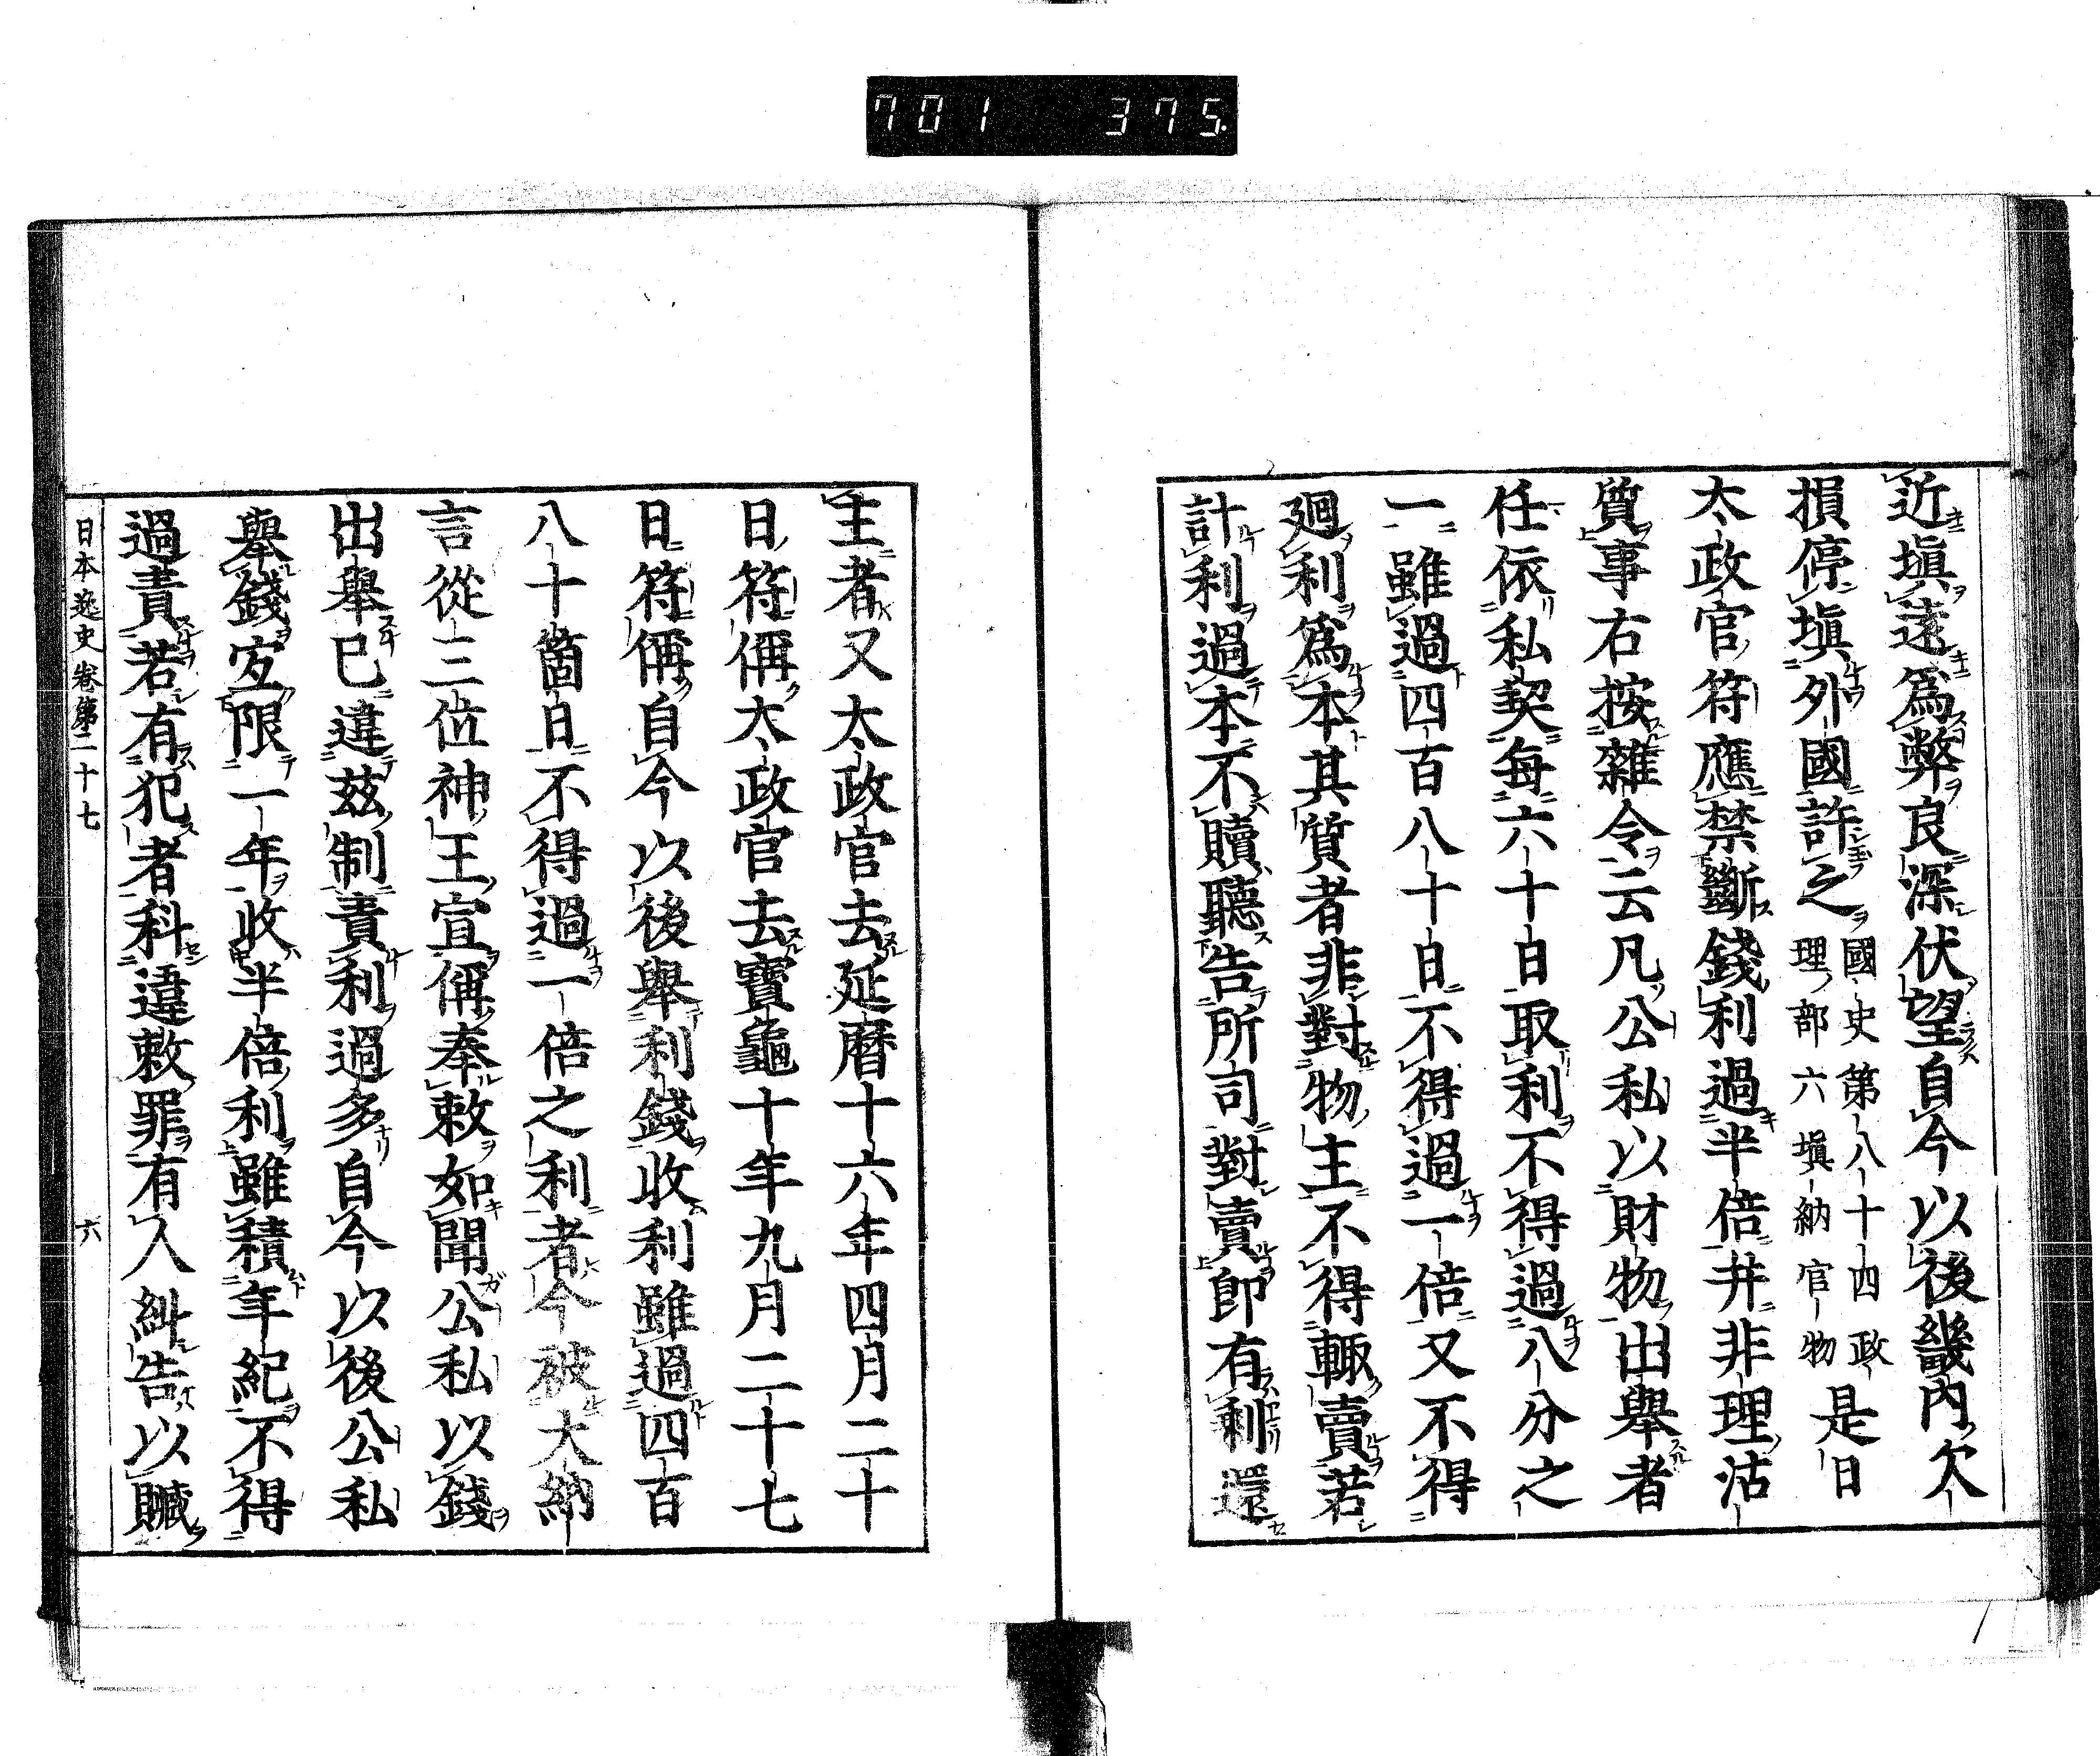 701 375.
近塡遠爲弊良深伏望自今以後畿內欠
損停塡外國許之國史第八十四政理部六塡納官物是日
太政官符應禁斷錢利過半倍幷非理沽
質事右按雜令云凡公私以財物出舉者
任依私契每六十日取利不得過八分之
一雖過四百八十日不得過一倍又不得
廻利爲本其質者非對物主不得輙賣若
計利過本不贖聽告所司對賣卽有剩還
主者又太政官去延曆十六年四月二十
日符偁太政官去寶龜十年九月二十七
日符偁自今以後舉利錢收利雖過四百
八十箇日不得過一倍之利者今被大納
言從三位神王宣偁奉敕如聞公私以錢
出舉已違茲制責利過多自今以後公私
舉錢宜限一年收半倍利雖積年紀不得
過責若有犯者科違敕罪有人糾告以贓
日本逸史卷第二十七 六